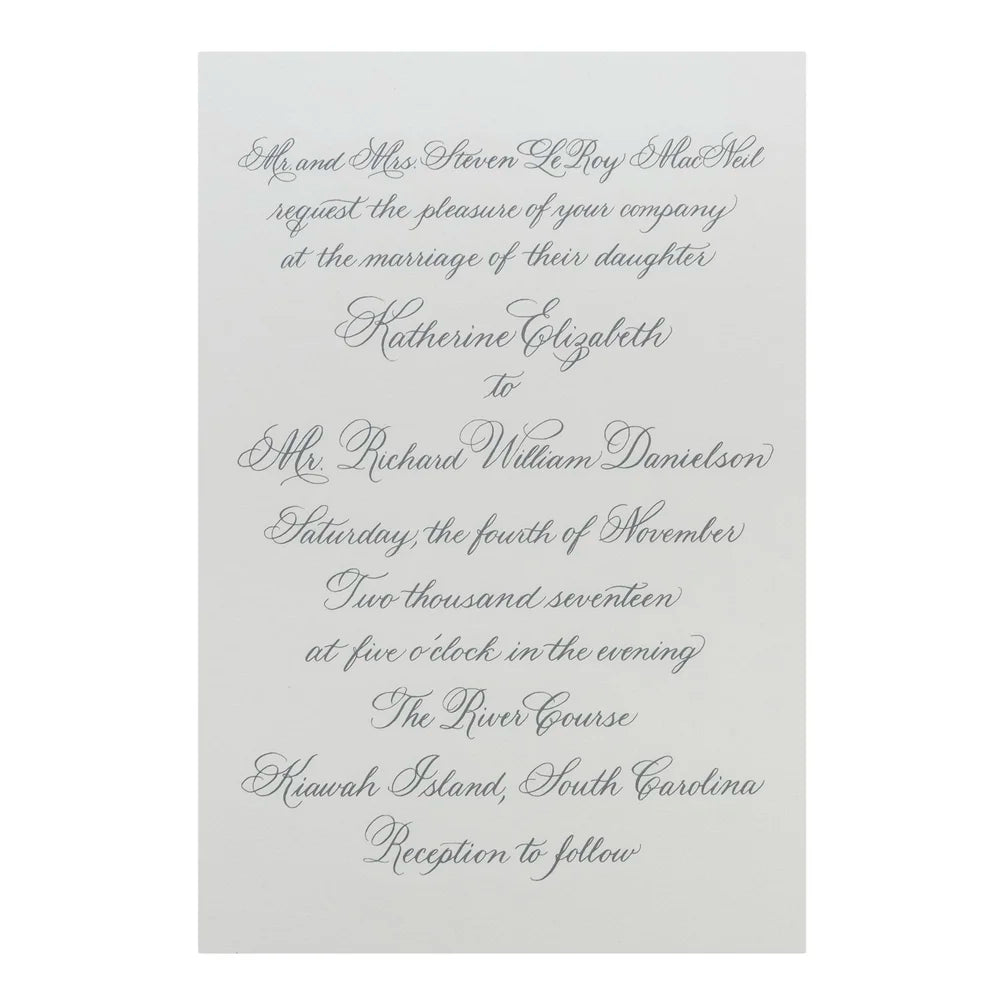 Mr. and Mrs. Steven LeRoy MacNeil
request the pleasure of your company
at the marriage of their daughter
Katherine Elizabeth
to
Mr. Richard William Danielson
Saturday, the fourth of November
Two thousand seventeen
at five o'clock in the evening
The River Course
Kiawah Island, South Carolina
Reception to follow